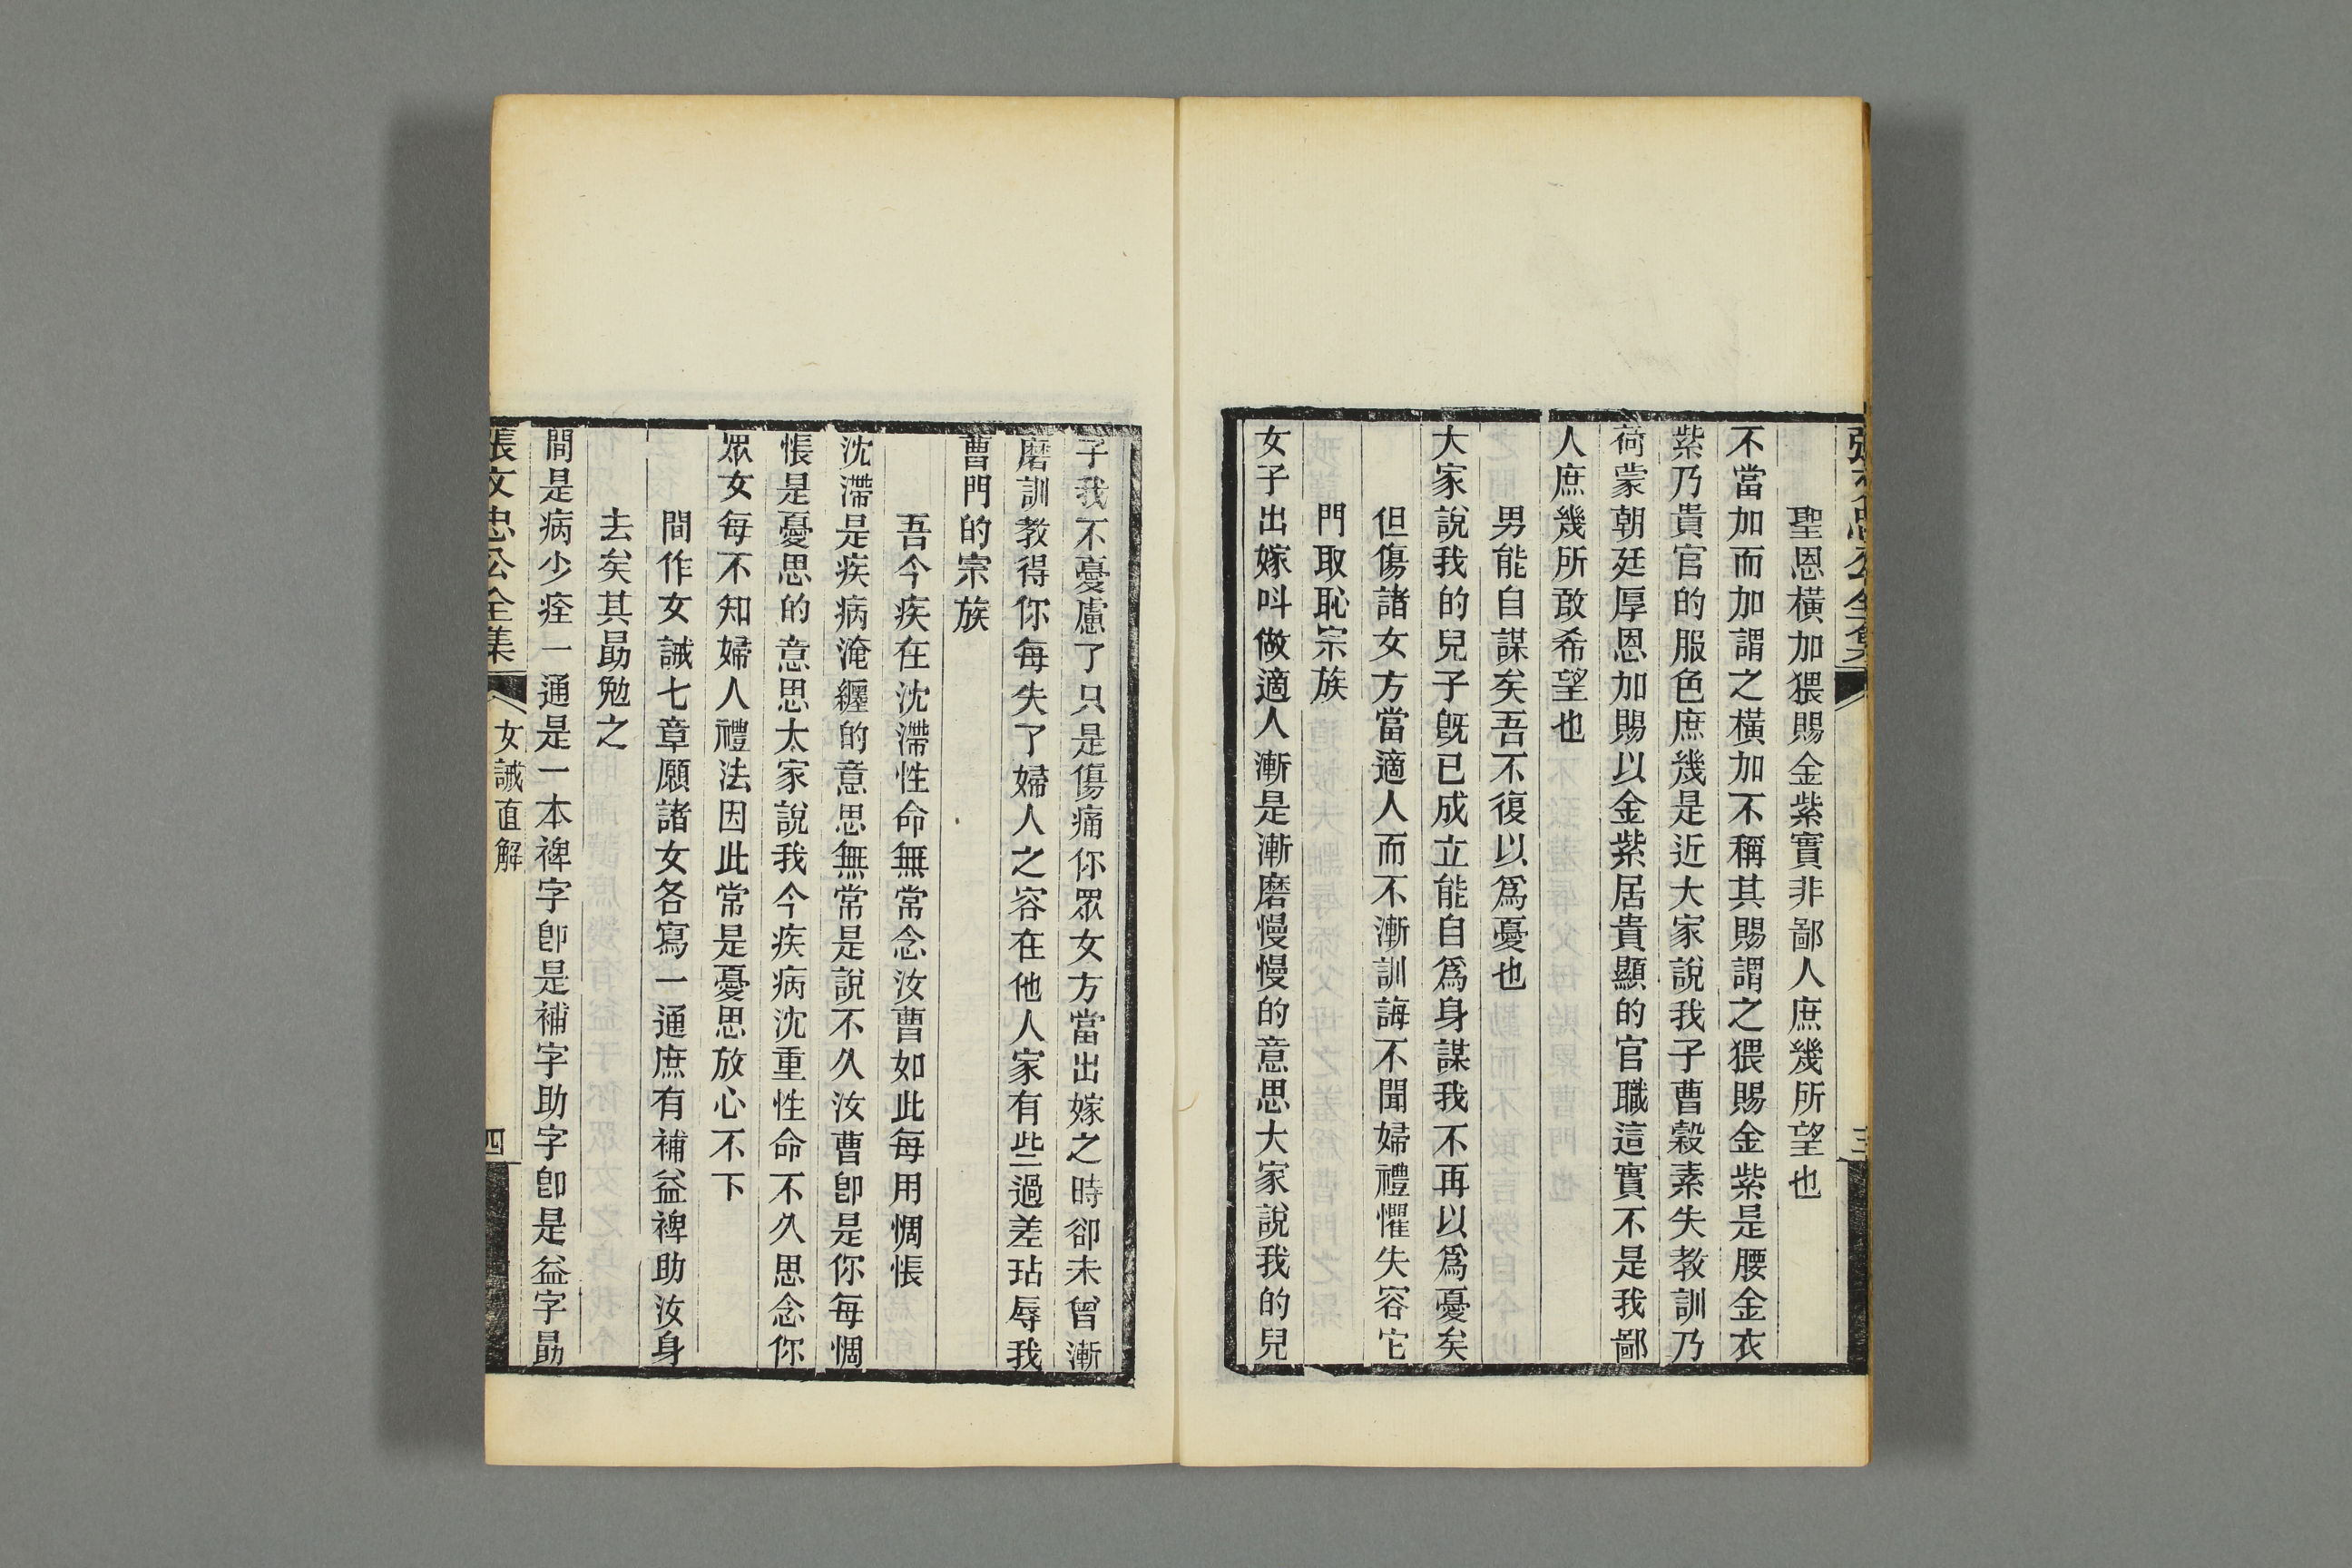 聖恩橫加猥賜金紫實非鄙人庶幾所望也
不當加而加謂之橫加不稱其賜謂之猥賜金紫是腰金衣
紫乃貴官的服色庶幾是近大家說我子曹穀素失教訓乃
荷蒙朝廷厚恩加賜以金紫居貴顯的官職這實不是我鄙
人庶幾所敢希望也
男能自謀矣吾不復以爲憂也
大家說我的兒子旣已成立能自爲身謀我不再以爲憂矣
但傷諸女方當適人而不漸訓誨不聞婦禮懼失容它
門取恥宗族
女子出嫁呌做適人漸是漸磨慢慢的意思大家說我的兒
子我不憂慮了只是傷痛你眾女方當出嫁之時卻未曾漸
磨訓教得你每失了婦人之容在他人家有些過差玷辱我
曹門的宗族
吾今疾在沈滯性命無常念汝曹如此每用惆悵
沈滯是疾病淹纏的意思無常是說不久汝曹卽是你每惆
悵是憂思的意思大家說我今疾病沈重性命不久思念你
眾女每不知婦人禮法因此常是憂思放心不下
間作女誡七章願諸女各寫一通庶有補益裨助汝身
去矣其勗勉之
間是病少痊一通是一本裨字卽是補字助字卽是益字勗
張文忠公全集
女誡直解
四